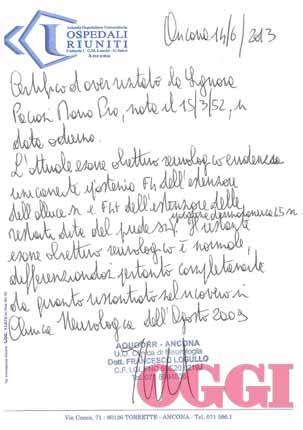 Azienda Ospedaliero Universitaria
OSPEDALI
RIUNITI
Umberto I - G.M. Lancisi - G. Salesi
Ancona
Ancona 14/6/2013
Certifico di aver visitato la Signora
Pia, nata il 15/3/52, in
data odierna.
L'attuale esame obiettivo neurologico evidenzia
unicamente ipostenia F4 dell'estensore
dell'alluce sn e F4+ dell'estensore delle
restanti dita del piede sn. Il restante
esame obiettivo neurologico è normale,
differenziandosi pertanto completamente
da quanto riscontrato sul ricovero in
Clinica Neurologica dell'Agosto 2009
AOUOORR - ANCONA
U.O. Clinica di Neurologia
Dott. FRANCESCO LOGULLO
OGGI
Via Conca, 71 - 60126 TORRETTE - ANCONA - Tel. 071 596.1